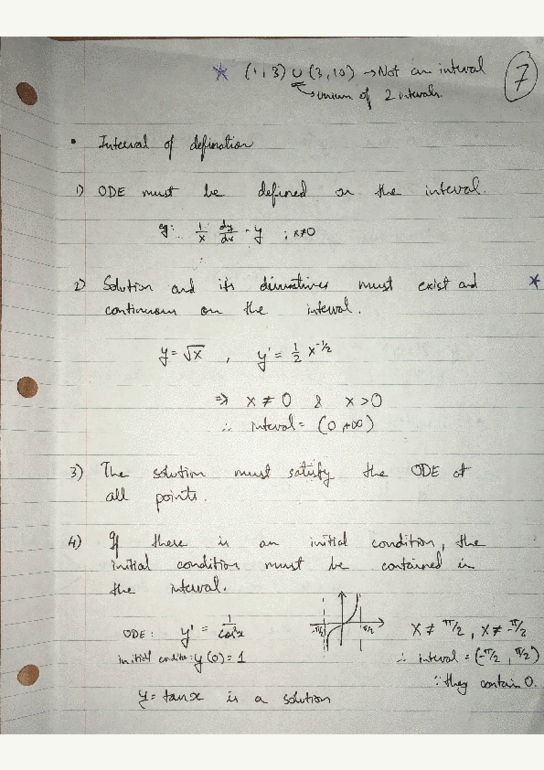 * (1,3) ∪ (3,10) → Not an interval
7
↳ union of 2 intervals
• Interval of defination
1) ODE must be defined on the interval.
eg: 1/x dy/dx = y ; x≠0
2) Solution and its derivatives must exist and *
continuous on the interval.
y = √x , y' = 1/2 x^-1/2
⇒ x ≠ 0 & x > 0
∴ interval = (0, +∞)
3) The solution must satisfy the ODE at
all points.
4) If there is an initial condition, the
initial condition must be contained in
the interval.
ODE: y' = 1/cos²x
-π/2 π/2
x ≠ π/2, x ≠ -π/2
initial condition: y(0) = 1
∴ interval = (-π/2, π/2)
∵ they contain 0.
y = tan x is a solution